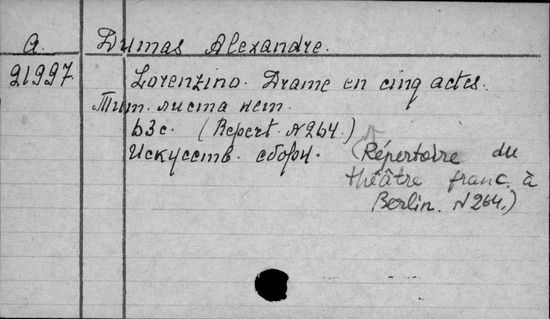 A. Dumas Alexandre.
21997. Lorenzino. Drame en cinq actes.
Тит. листа нет.
63 с. (Repert. N 264.)
Искусств. сборн. (Répertoire du
théâtre franc. à
Berlin. N 264.)